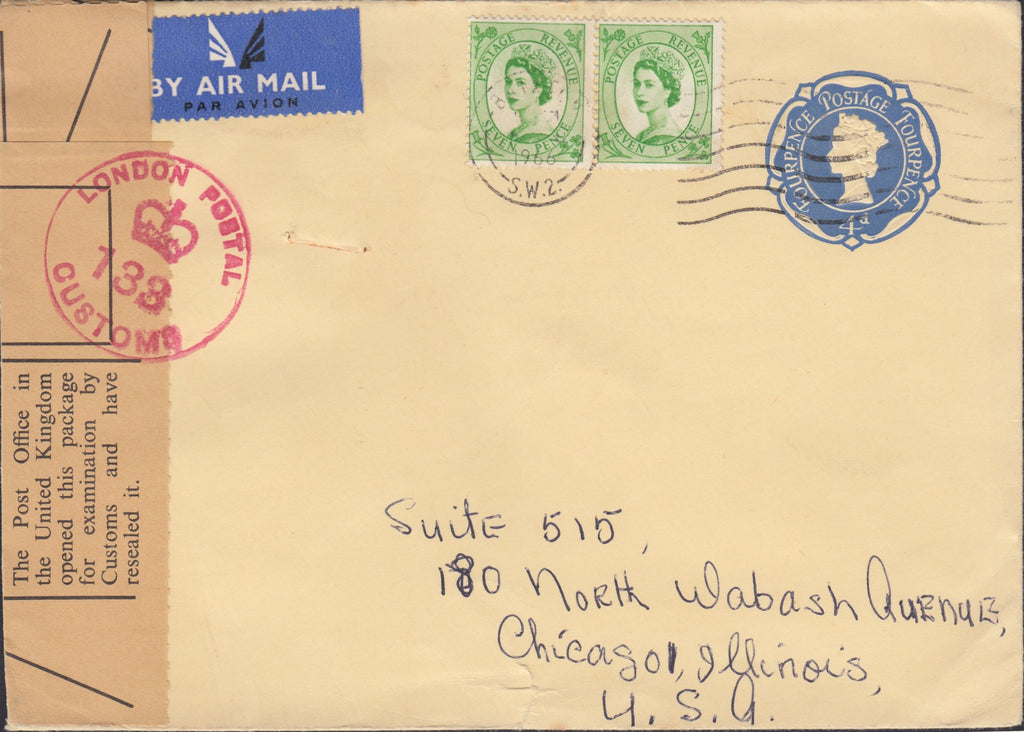 BY AIR MAIL
PAR AVION
POSTAGE REVENUE
SEVEN PENCE
POSTAGE REVENUE
SEVEN PENCE
1966
S.W.2.
FOURPENCE POSTAGE FOURPENCE
4d
LONDON POSTAL
CUSTOMS
The Post Office in
the United Kingdom
opened this package
for examination by
Customs and have
resealed it.
Suite 515,
180 North Wabash Avenue,
Chicago 1, Illinois,
U. S. A.